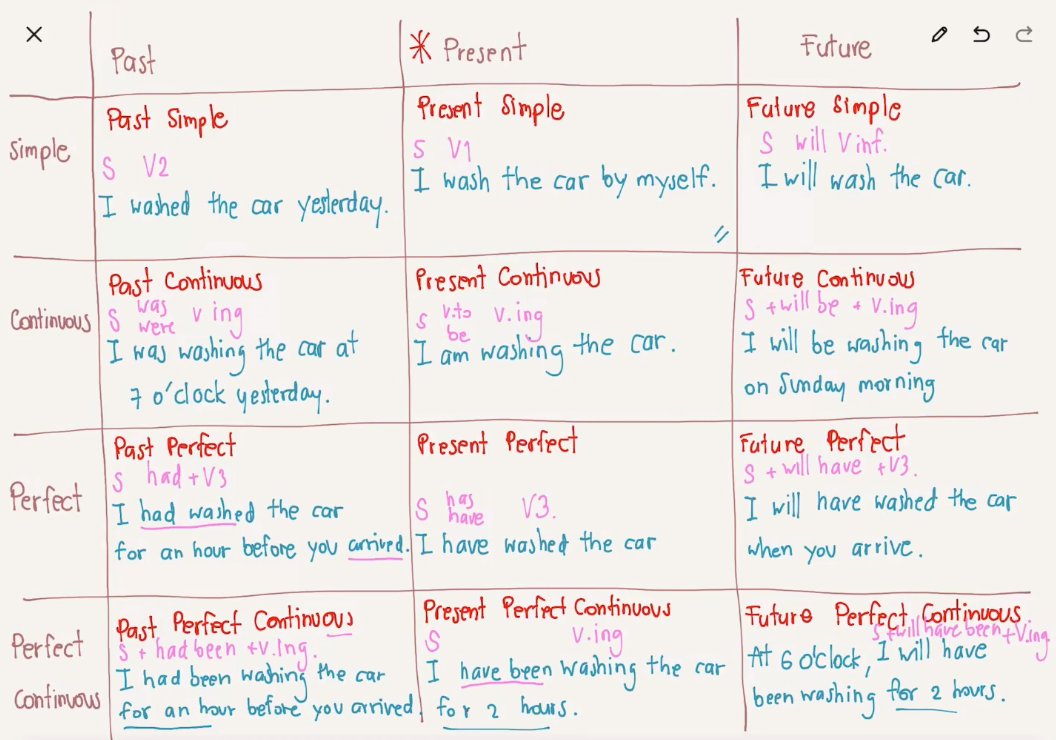 Past
* Present
Future
Simple
Past Simple
S V2
I washed the car yesterday.
Present Simple
S V1
I wash the car by myself.
Future Simple
S will V inf.
I will wash the car.
Continuous
Past Continuous
S was were v ing
I was washing the car at
7 o'clock yesterday.
Present Continuous
S v.to be v.ing
I am washing the car.
Future Continuous
S + will be + v.ing
I will be washing the car
on Sunday morning
Perfect
Past Perfect
S had + V3
I had washed the car
for an hour before you arrived.
Present Perfect
S has have V3.
I have washed the car
Future Perfect
S + will have + V3.
I will have washed the car
when you arrive.
Perfect
Continuous
Past Perfect Continuous
S + had been + v.Ing.
I had been washing the car
for an hour before you arrived.
Present Perfect Continuous
S v.ing
I have been washing the car
for 2 hours.
Future Perfect Continuous
S + will have been + V.ing
At 6 o'clock, I will have
been washing for 2 hours.